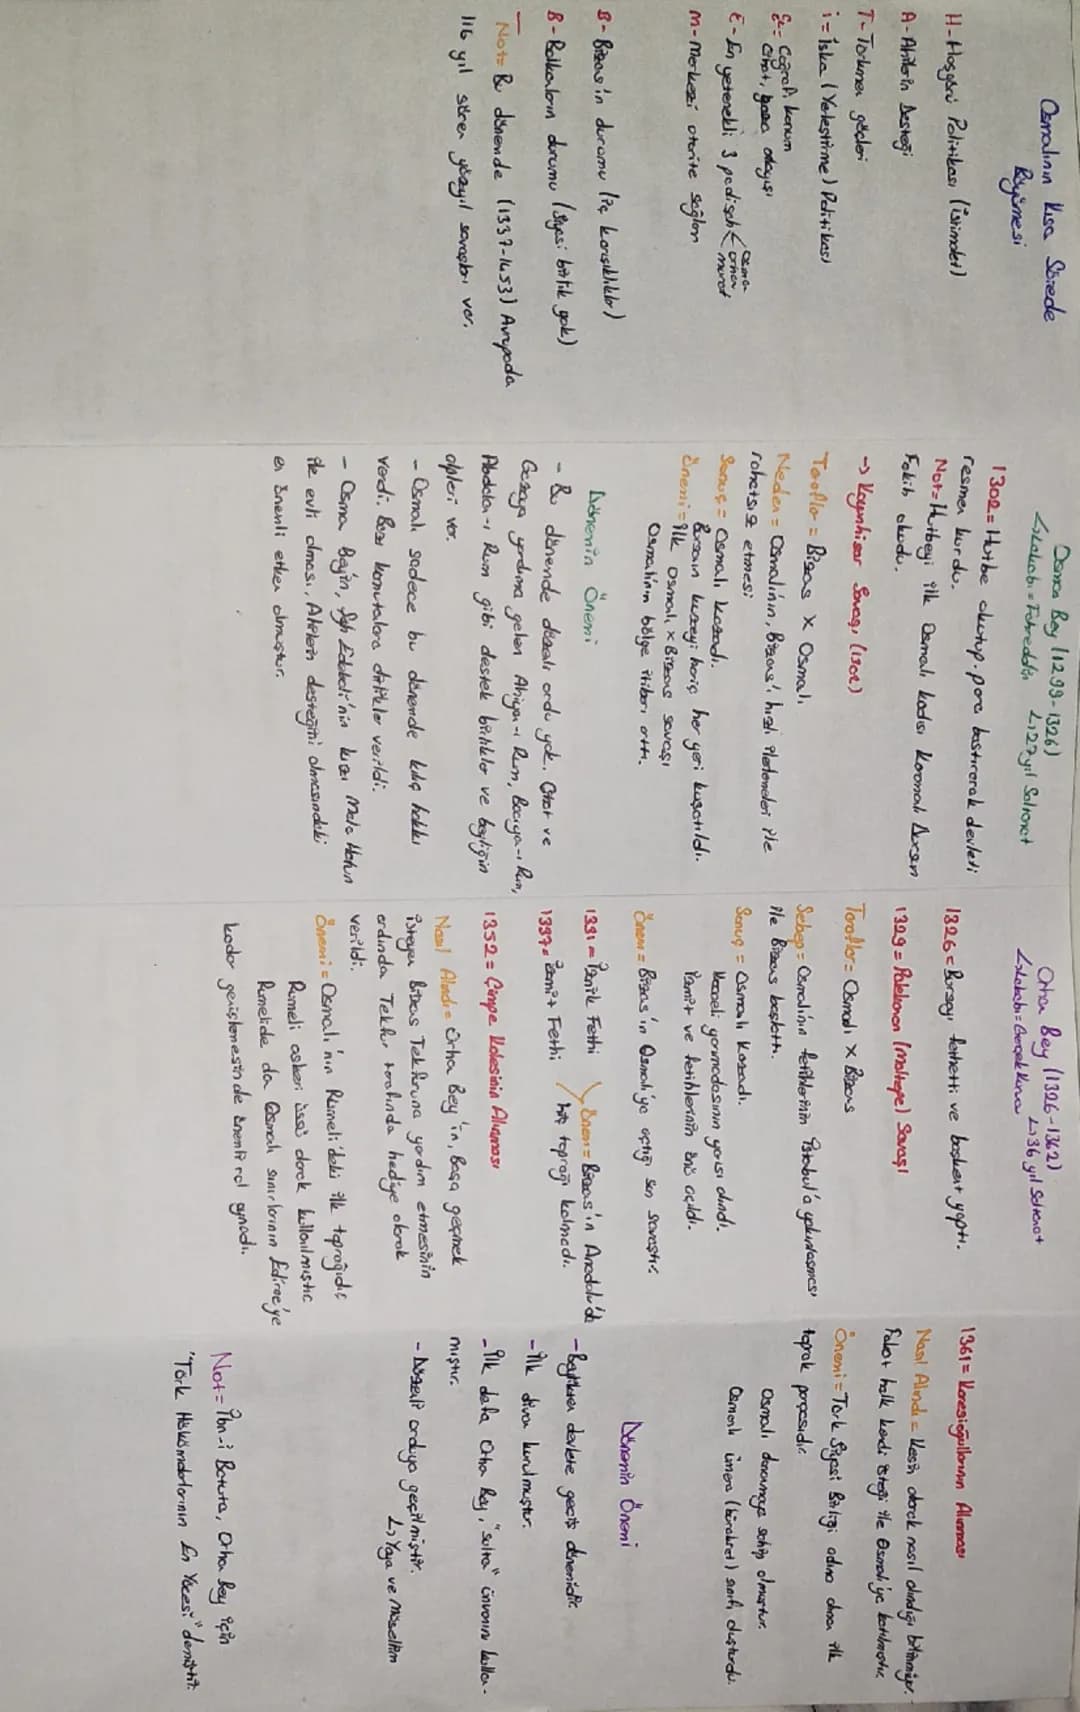 Osmalının Kısa Sürede
Büyümesi
H- Hoşgörü Politikası (istimalet)
A- Ahilerin Desteği
T- Türkmen göçleri
i = İskan (Yerleştirme) Politikası
Coğrafi konum
Cihat, gaza olayışı
E- En yetenekli 3 padişah < Osman
Orhan
murat
M- Merkezi otorite sağlam
B- Bizans'ın durumu (iç karışıklıklar)
B- Balkanların durumu (Siyasi birlik yok)
Not= Bu dönemde (1337-1453) Avrupada
116 yıl süren yüzyıl savaşları var.
Osman Bey (1299-1326)
↳Lakabı = Fahreddin ↳27 yıl Saltanat
1302= Hutbe okutup, para bastırarak devleti
resmen kurdu.
Not= Hutbeyi ilk Osmalı kadısı Karamalı Dursun
Fakih okudu.
→ Koyunhisar Savaşı (1302)
Taraflar = Bizans x Osmalı
Neden = Osmalının, Bizans'ı hızlı ilerlemeleri ile
rahatsız etmesi
Sonuç = Osmalı kazandı.
Bursanın kuzeyi hariç her yeri kuşatıldı.
Önemi = İlk Osmalı x Bizans savaşı
Osmalının bölge itibarı arttı.
Dönemin Önemi
- Bu dönemde düzenli ordu yok. Cihat ve
Gazaya yardıma gelen Ahiyan-ı Rum, Bacıyan-ı Rum,
Abdalan-ı Rum gibi destek birlikler ve beyliğin
alpleri var.
- Osmalı sadece bu dönemde kılıç hakkı
verdi. Bazı komutanlara dirlikler verildi.
- Osman Bey'in, Şeyh Edebali'nin kızı Mala Hatun
ile evli olması, Ahilerin desteğini almasındaki
en önemli etken olmuştur.
Orhan Bey (1326-1362)
↳Lakabı = Gerçek Kurucu ↳36 yıl Saltanat
1326= Bursayı fethetti ve başkent yaptı.
1329= Palekanon (maltepe) Savaşı
Taraflar= Osmalı x Bizans
Sebep= Osmalının fetihlerinin İstanbul'a yakınlaşması
ile Bizans başlattı.
Sonuç = Osmalı Kazandı.
Kocaeli yarımadasının yarısı alındı.
İzmit ve fetihlerinin önü açıldı.
Önem= Bizans'ın Osmalı'ya açtığı son savaştır.
1331= İznik Fethi
1337= İzmit Fethi
Önem= Bizans'ın Anadolu'da
hiç toprağı kalmadı.
1352 = Çimpe Kalesinin Alınması
Nasıl Alındı= Orhan Bey'in, Başa geçmek
isteyen Bizans Tekfuruna yardım etmesinin
ardında Tekfur tarafında hediye olarak
verildi.
Önemi = Osmalı'nın Rumeli'deki ilk toprağıdır.
Rumeli askeri üssü olarak kullanılmıştır.
Rumelide da Osmalı sınırlarının Edirne'ye
kadar genişlemesinde önemli rol oynadı.
1361= Karesioğullarının Alınması
Nasıl Alındı= Kesin olarak nasıl alındığı bilinmiyor.
Fakat halk kendi isteği ile Osmalı'ya katılmıştır.
Önemi = Türk Siyasi Birliği adına alınan ilk
toprak parçasıdır.
Osmalı donanmaya sahip olmuştur.
Osmanlı ümera (bürokrat) sınıfı oluşturdu.
Dönemin Önemi
- Beylikten devlete geçiş dönemidir.
- İlk divan kurulmuştur.
- İlk defa Orhan Bey, "sultan" ünvanını kullan-
mıştır.
- Düzenli orduya geçilmiştir.
↳ Yaya ve Müsellem
Not= İbn-i Batuta, Orhan Bey için
"Türk Hükümdarlarının En Yücesi" demiştir.